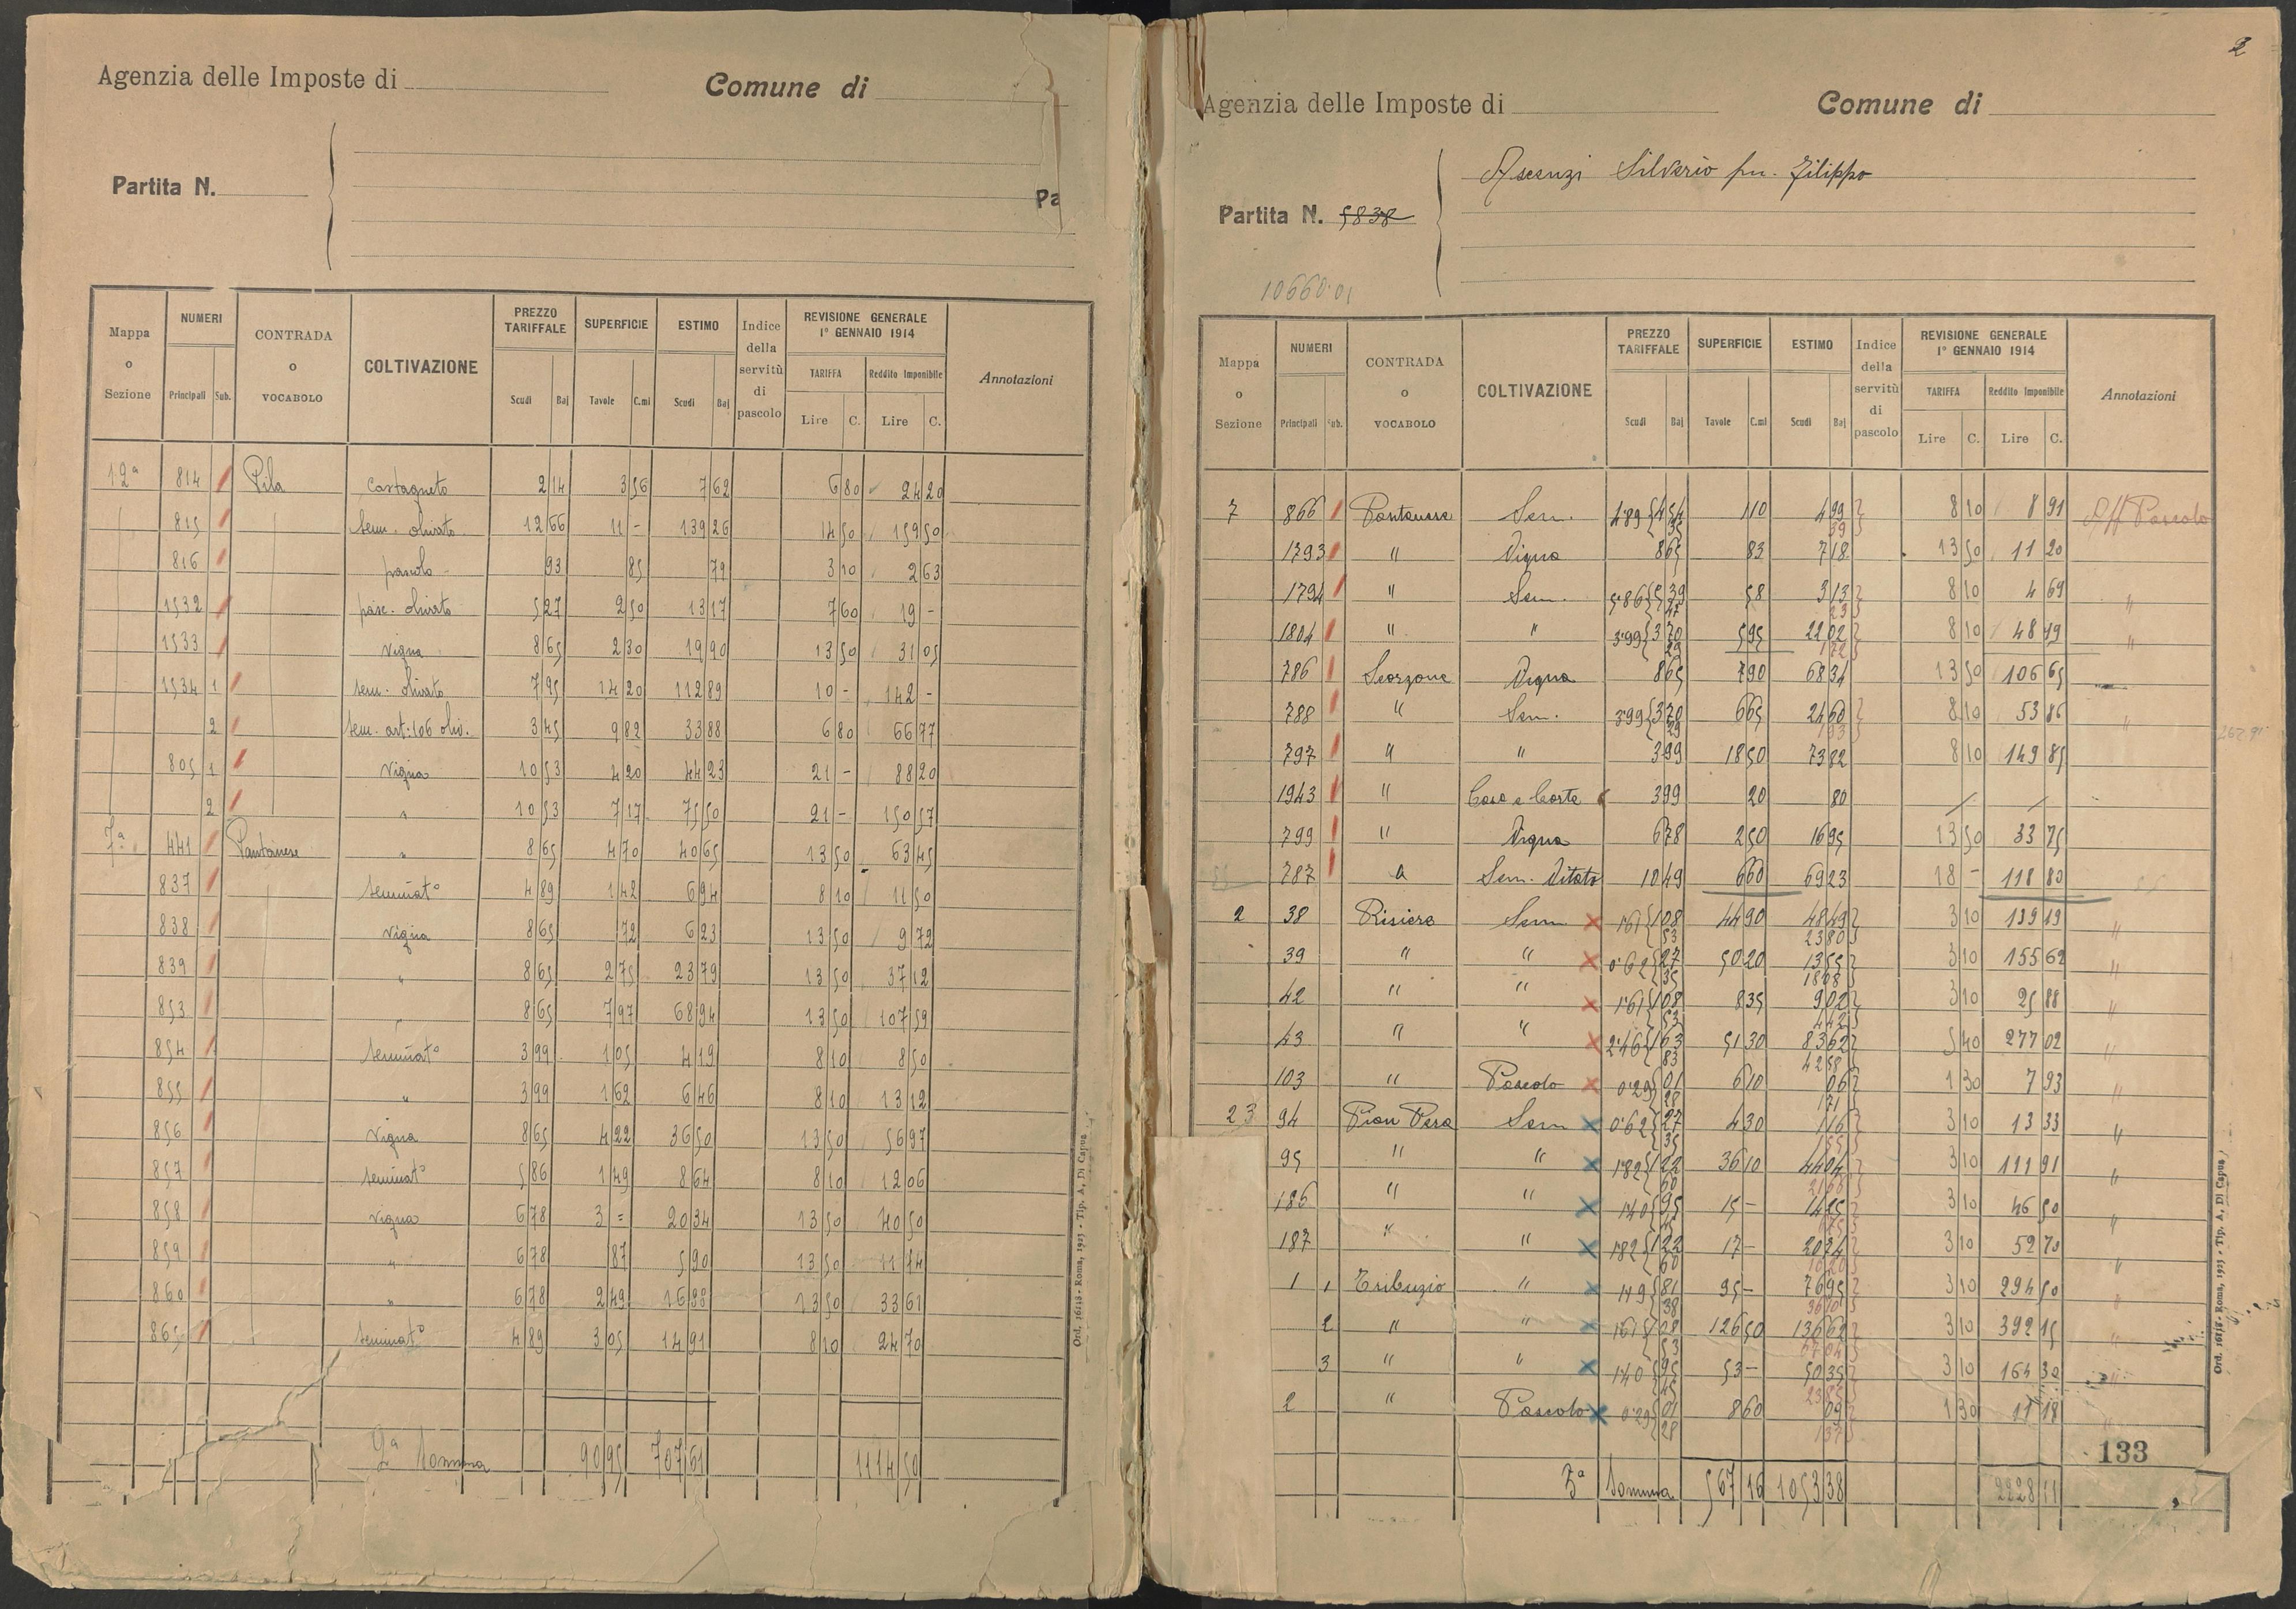 Agenzia delle Imposte di
Comune di
Partita N.
Pa
Mappa o Sezione | NUMERI Principali Sub. | CONTRADA o VOCABOLO | COLTIVAZIONE | PREZZO TARIFFALE Scudi Baj | SUPERFICIE Tavole C.mi | ESTIMO Scudi Baj | Indice della servitù di pascolo | REVISIONE GENERALE 1° GENNAIO 1914 TARIFFA Lire C. Reddito Imponibile Lire C. | Annotazioni
12ª 814 Pila Castagneto 2 14 3 56 7 62 6 80 24 20
815 Sem. olivato 12 66 11 - 139 26 14 50 159 50
816 pascolo 93 85 79 3 10 2 63
1532 pasc. olivato 5 27 2 50 13 17 7 60 19 -
1533 Vigna 8 65 2 30 19 90 13 50 31 05
1534 1 Sem. olivato 7 95 14 20 112 89 10 - 142 -
2 Sem. art: 106 oliv. 3 45 9 82 33 88 6 80 66 77
805 1 Vigna 10 53 4 20 44 23 21 - 88 20
2 " 10 53 7 17 75 50 21 - 150 57
7ª 441 Pantanese " 8 65 4 70 40 65 13 50 63 45
837 Seminatº 4 89 1 42 6 94 8 10 11 50
838 Vigna 8 65 72 6 23 13 50 9 72
839 " 8 65 2 75 23 79 13 50 37 12
853 " 8 65 7 97 68 94 13 50 107 59
854 Seminatº 3 99 1 05 4 19 8 10 8 50
855 " 3 99 1 62 6 46 8 10 13 12
856 Vigna 8 65 4 22 36 50 13 50 56 97
857 Seminatº 5 86 1 49 8 64 8 10 12 06
858 Vigna 6 78 3 = 20 34 13 50 40 50
859 " 6 78 87 5 90 13 50 11 74
860 " 6 78 2 49 16 88 13 50 33 61
865 Seminatº 4 89 3 05 14 91 8 10 24 70
2ª Somma 90 95 707 61 1114 50
Ord. 16218 - Roma, 1923 - Tip. A. Di Capua
2
Agenzia delle Imposte di
Comune di
Ascenzi Silverio fu. Filippo
Partita N. 5838
10660.01
Mappa o Sezione | NUMERI Principali Sub. | CONTRADA o VOCABOLO | COLTIVAZIONE | PREZZO TARIFFALE Scudi Baj | SUPERFICIE Tavole C.mi | ESTIMO Scudi Baj | Indice della servitù di pascolo | REVISIONE GENERALE 1° GENNAIO 1914 TARIFFA Lire C. Reddito Imponibile Lire C. | Annotazioni
7 866 Pantanese Sem. 4.89 { 4 54 35 1 10 4 99 39 8 10 8 91 Aff Pascolo
1793 " Vigna 8 65 83 7 18 13 50 11 20
1794 " Sem. 5.86 { 5 39 47 58 3 13 23 8 10 4 69 "
1804 " " 3.99 { 3 70 29 5 95 22 02 1 72 8 10 48 19 "
786 Scorzone Vigna 8 65 7 90 68 34 13 50 106 65
788 " Sem. 3.99 { 3 70 29 6 65 24 60 1 93 8 10 53 86 "
797 " " 3 99 18 50 73 82 8 10 149 85
1943 " Casa e Corte 3 99 20 80
799 " Vigna 6 78 2 50 16 95 13 50 33 75
787 " Sem. Vitato 10 49 6 60 69 23 18 - 118 80
2 38 Risiere Sem 1.61 { 1 08 53 44 90 48 49 23 80 3 10 139 19 "
39 " " 0.62 { 27 35 50 20 13 55 18 08 3 10 155 62 "
42 " " 1.61 { 1 08 53 8 35 9 02 4 42 3 10 25 88 "
43 " " 2.46 { 1 63 83 51 30 83 62 42 58 5 40 277 02 "
103 " Pascolo 0.29 { 01 28 6 10 06 1 71 1 30 7 93 "
23 94 Pian Pera Sem 0.62 { 27 35 4 30 1 16 1 55 3 10 13 33 "
95 " " 1.82 { 1 22 60 36 10 44 04 21 68 3 10 111 91 "
186 " " 1.40 { 95 45 15 - 14 25 3 10 46 50 "
187 " " 1.82 { 1 22 60 17 - 20 74 10 20 3 10 52 70 "
1 1 Tribuzio " 1.19 { 81 38 95 - 76 95 36 10 3 10 294 50 "
2 " " 1.61 { 1 08 53 126 50 136 62 67 04 3 10 392 15 "
3 " " 1.40 { 95 45 53 - 50 35 23 85 3 10 164 30 "
2 " Pascolo 0.29 { 01 28 8 60 09 1 30 11 18
133
3ª Somma 567 16 1053 38 2228 11
Ord. 16218 - Roma, 1923 - Tip. A. Di Capua